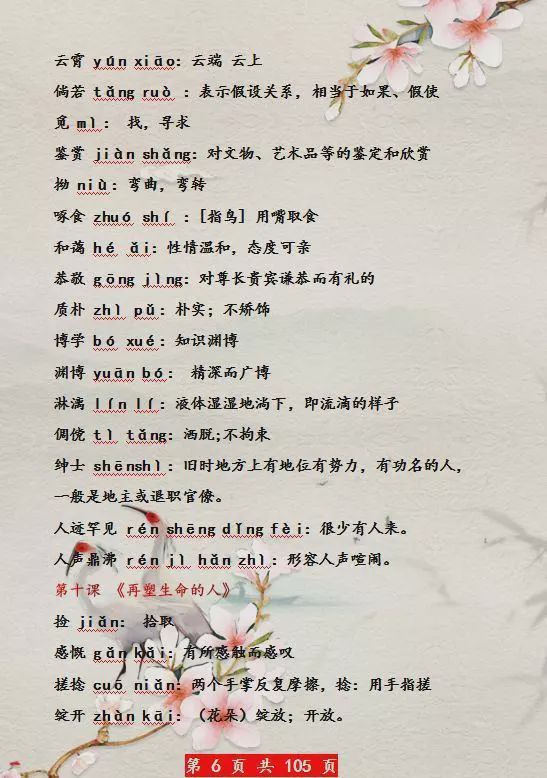 云霄 yún xiāo：云端 云上
倘若 tǎng ruò ：表示假设关系，相当于如果、假使
觅 mì： 找，寻求
鉴赏 jiàn shǎng：对文物、艺术品等的鉴定和欣赏
拗 niù：弯曲，弯转
啄食 zhuó shí ：[指鸟] 用嘴取食
和蔼 hé ǎi：性情温和，态度可亲
恭敬 gōng jìng：对尊长贵宾谦恭而有礼的
质朴 zhì pǔ：朴实；不矫饰
博学 bó xué：知识渊博
渊博 yuān bó： 精深而广博
淋漓 lín lí：液体湿湿地淌下，即流漓的样子
倜傥 tì tǎng：洒脱;不拘束
绅士 shēnshì：旧时地方上有地位有势力，有功名的人，
一般是地主或退职官僚。
人迹罕见 rén shēng dǐng fèi：很少有人来。
人声鼎沸 rén jì hǎn zhì：形容人声喧闹。
第十课 《再塑生命的人》
捡 jiǎn： 拾取
感慨 gǎn kǎi：有所感触而感叹
搓捻 cuō niǎn：两个手掌反复摩擦，捻：用手指搓
绽开 zhàn kāi：（花朵）绽放；开放。
第 6 页 共 105 页